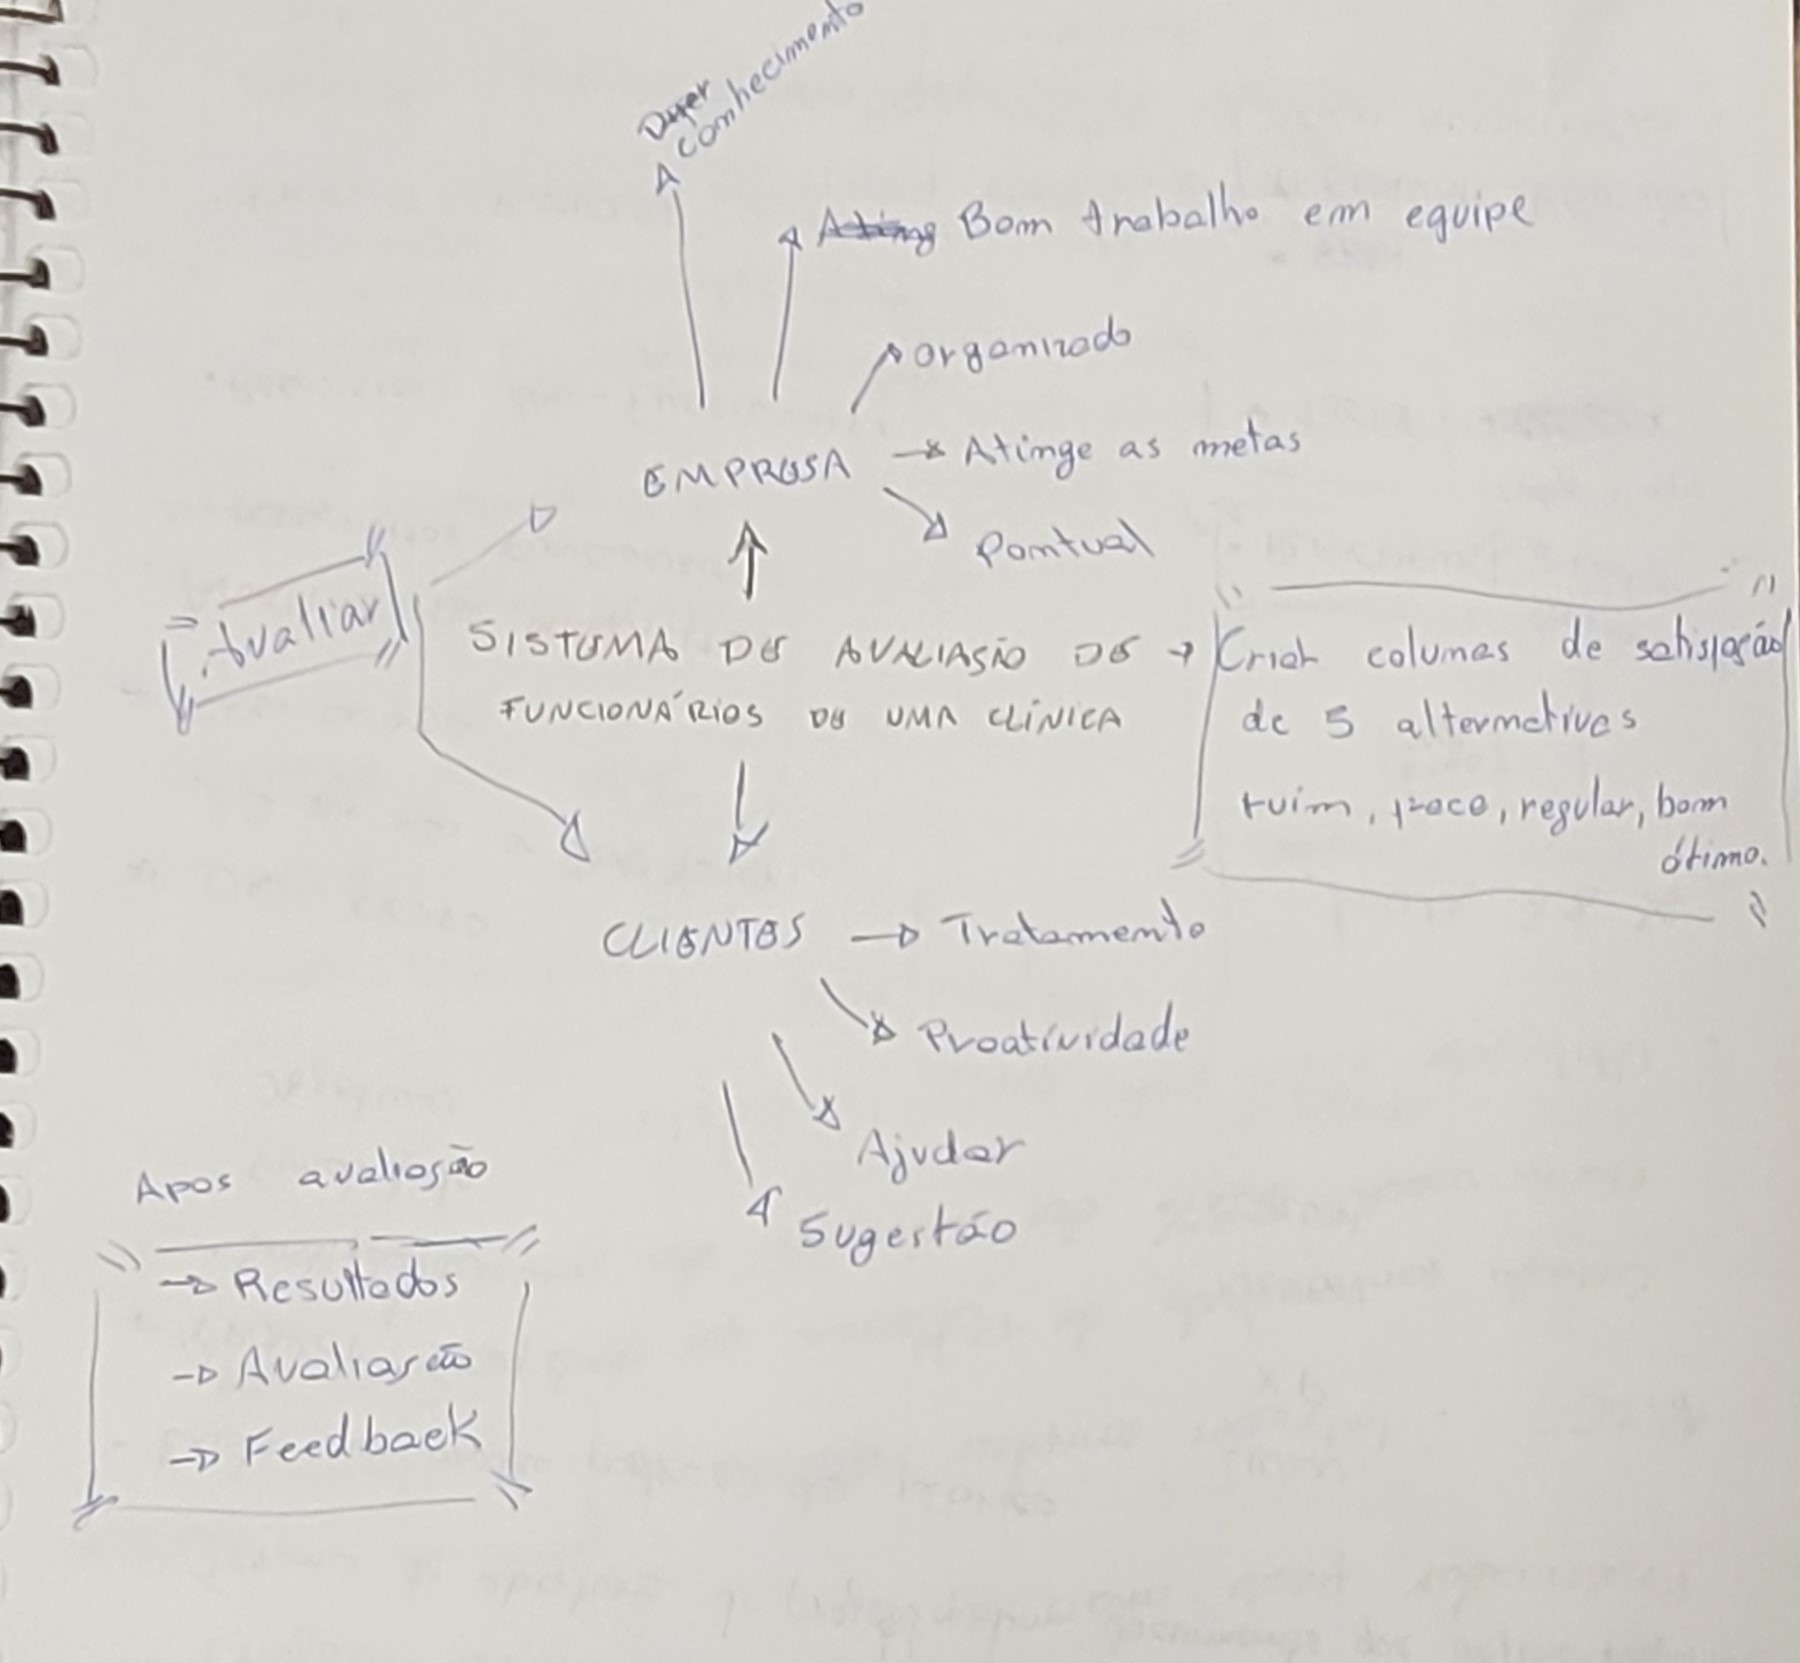 conhecimento
Bom trabalho em equipe
organizado
EMPRESA → Atinge as metas
Pontual
Avaliar
SISTEMA DE AVALIASÃO DE →
FUNCIONÁRIOS DE UMA CLÍNICA
Criar colunas de satisfação
de 5 alternativas
ruim, regular, bom
ótimo.
CLIENTES → Tratamento
Proatividade
Ajudar
Sugestão
Apos avaliasão
→ Resultados
→ Avaliasão
→ Feedback